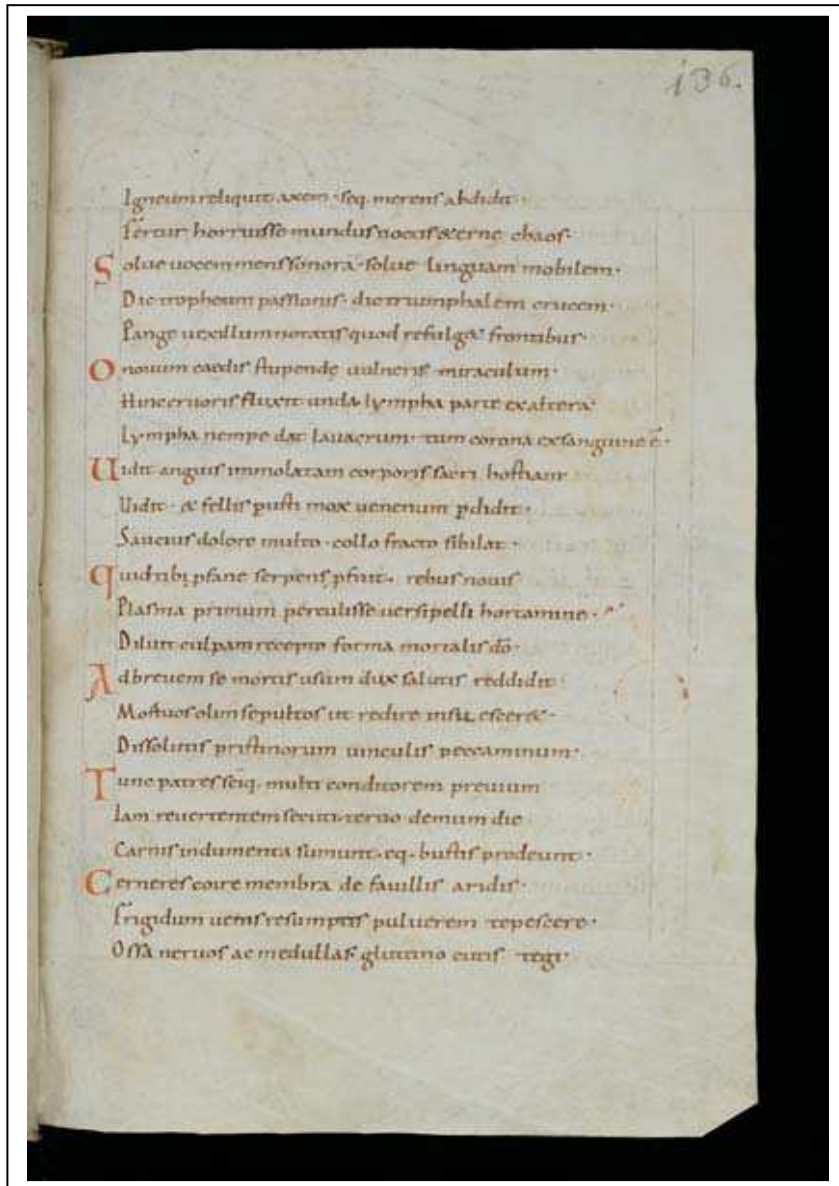 136.
Igneum reliquit axem · seq. merens abdidit ·
Fertur horruisse mundus noctis &erne chaos ·
Solue uocem mens sonora · solue linguam mobilem ·
Dic tropheum passionis · dic triumphalem crucem ·
Pange uexillum notatis quod refulg& frontibus ·
O nouum caedis stupende uulneris miraculum ·
Hinc cruoris fluxit unda lympha parte ex altera ·
Lympha nempe dat lauacrum · tum corona ex sanguine ē ·
Uidit anguis immolatam corporis sacri hostiam
Uidit · & fellis pusti mox uenenum pdidit ·
Saucius dolore multo · collo fracto sibilat ·
Quid tibi pfane serpens pfuit · rebus nouis
Plasma primum perculisse uersipelli hortamine ·
Diluit culpam recepto forma mortalis dō ·
Ad breuem se mortis usum dux salutis reddidit ·
Mortuos olim sepultos ut redire insuescer& ·
Dissolutis pristinorum uinculis peccaminum ·
Tunc patres sciq. multi conditorem preuium
Iam reuertentem secuti · tertio demum die
Carnis indumenta sumunt · eq. bustis prodeunt ·
Cerneres coire membra de fauillis aridis ·
Frigidum uenis resumptis puluerem tepescere ·
Ossa neruos ac medullas glutino cutis tegi ·